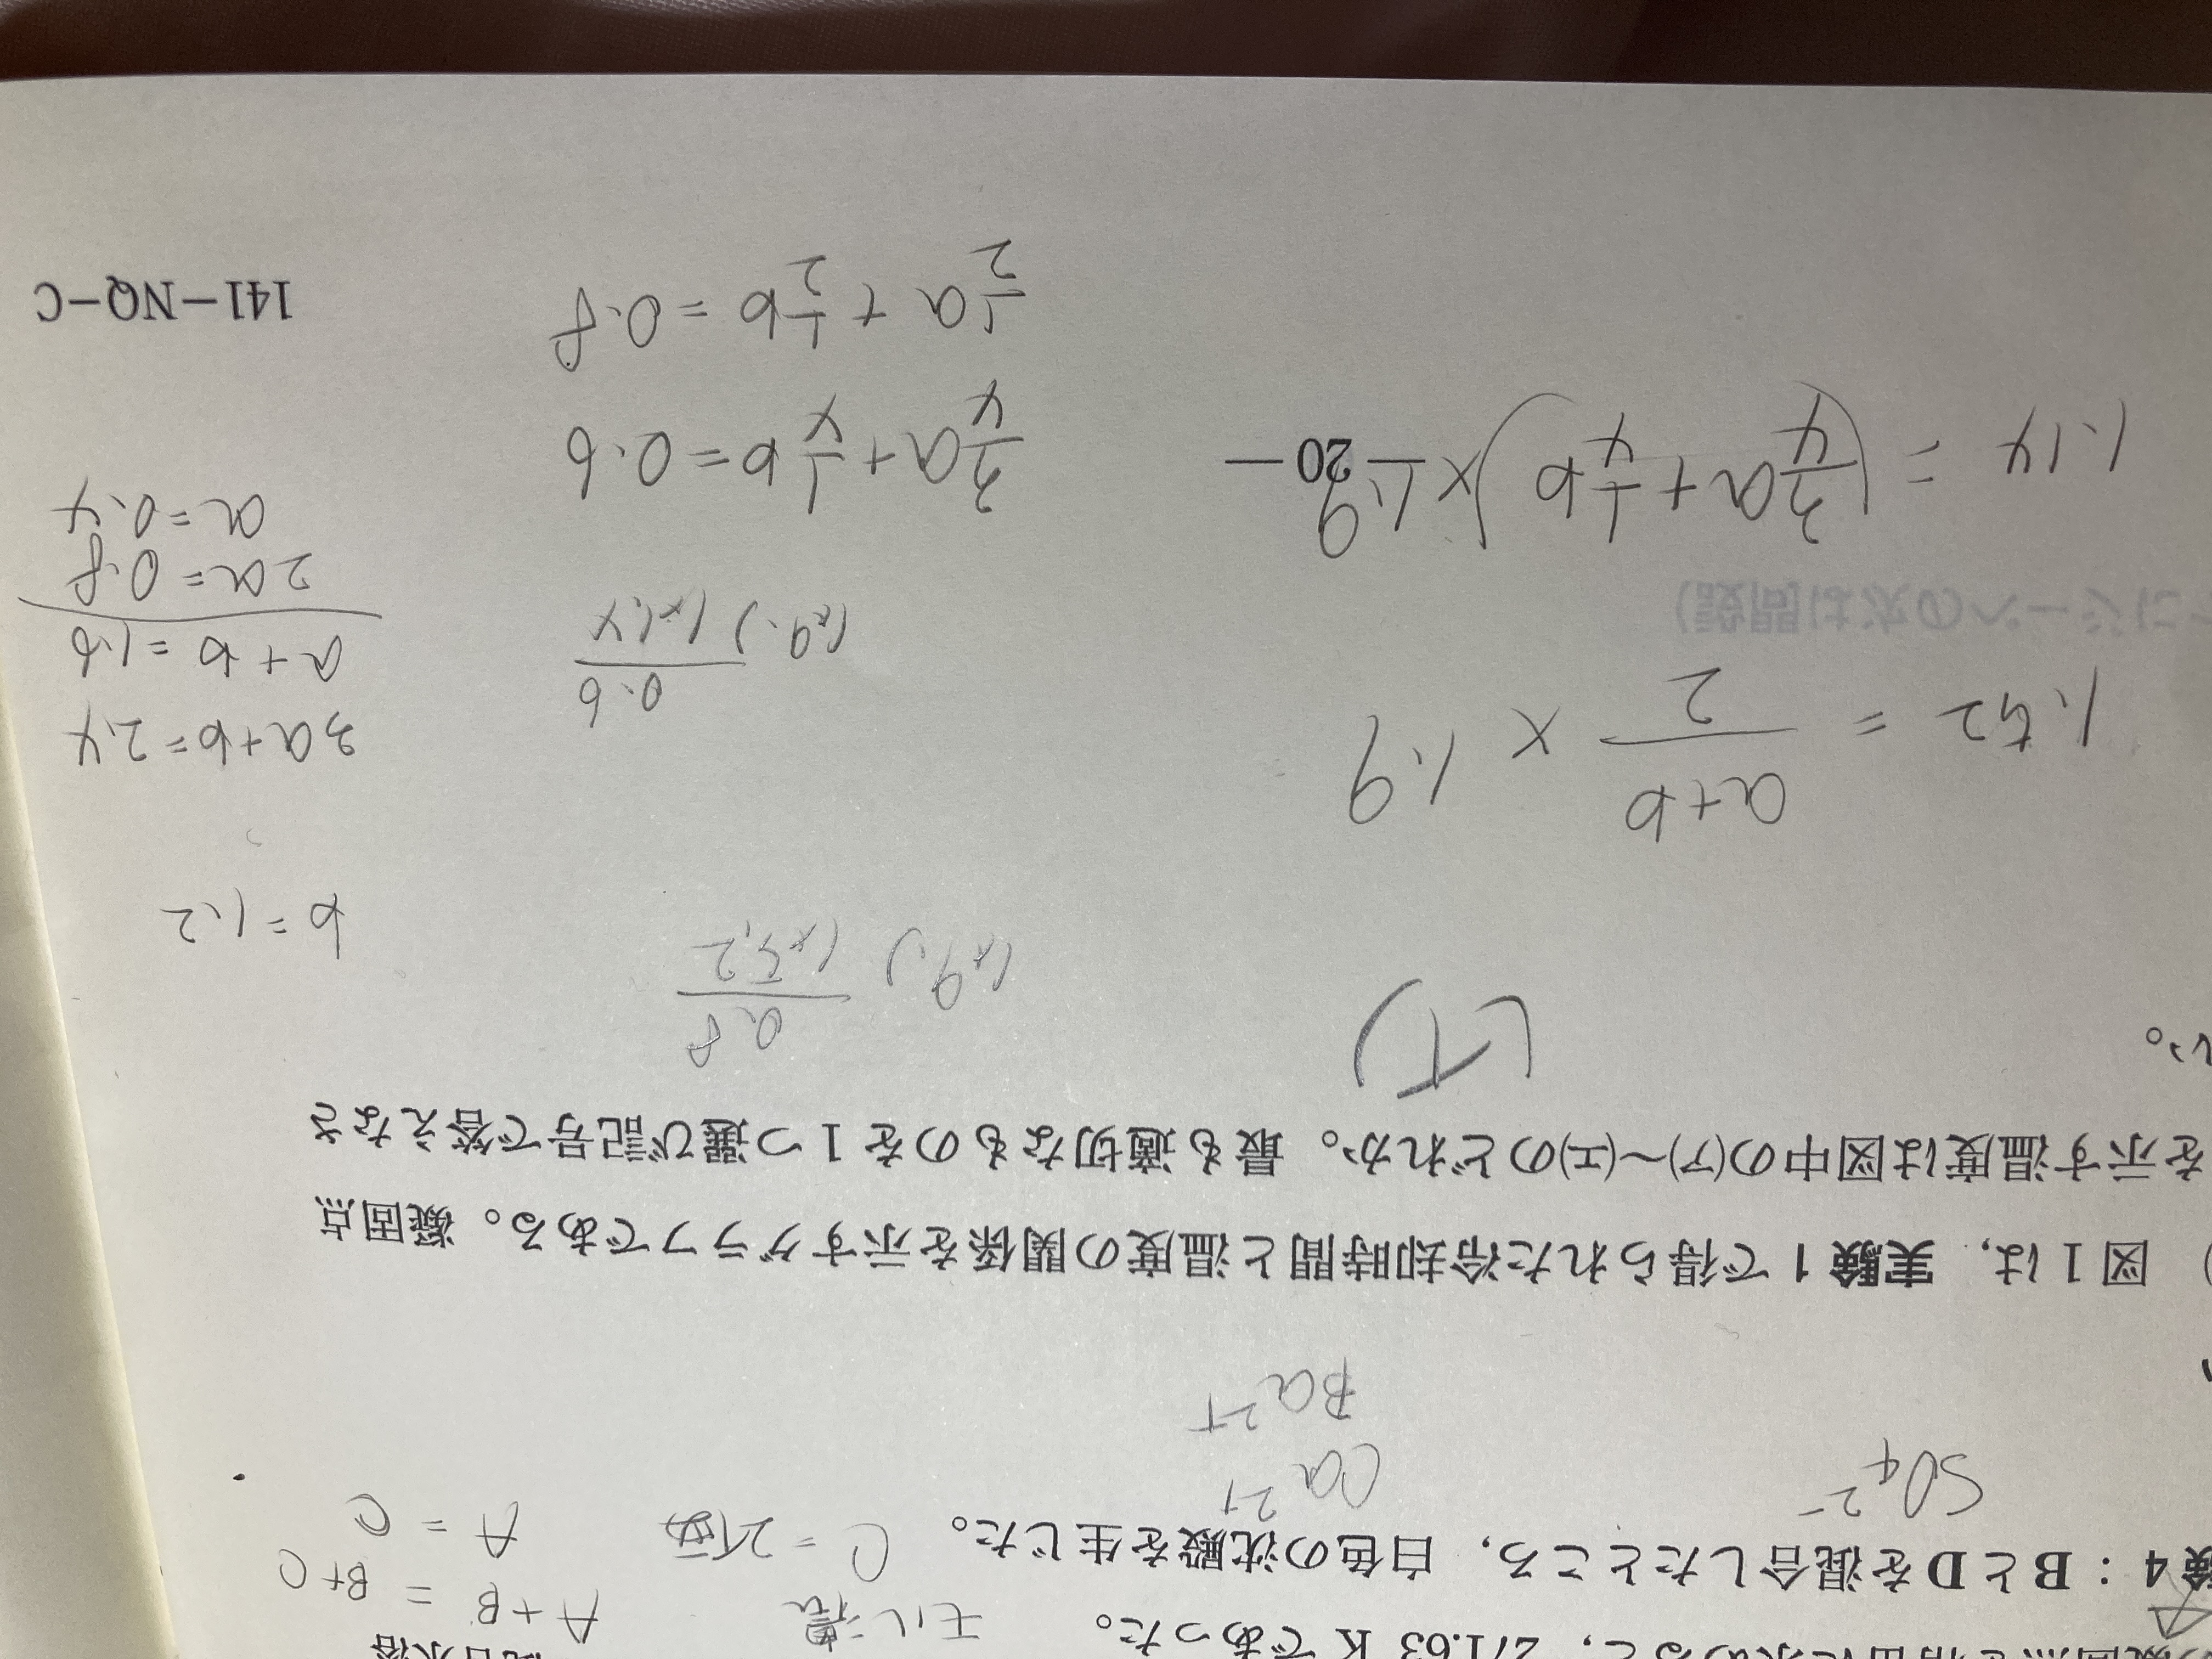 の凝固点を精密に求めると，271.63 K であった。
モル濃度
A + B = B + C
験 4 ：B と D を混合したところ，白色の沈殿を生じた。
C = 2価
A = C
SO₄²⁻
Ca²⁺
Ba²⁺
) 図 1 は，実験 1 で得られた冷却時間と温度の関係を示すグラフである。凝固点
を示す温度は図中の(ア)～(エ)のどれか。最も適切なものを 1 つ選び記号で答えなさ
い。
(イ)
0.8
1.9.) 1×5.2
b = 1.2
1.52 = a+b/2 × 1.9
0.6
1.9.) 1×1.4
3a + b = 2.4
a + b = 1.6
2a = 0.8
a = 0.4
1.14 = (3/4a + 1/4b) × 1.9
3/4a + 1/4b = 0.6
1/2a + 1/2b = 0.8
— 20 —
141−NQ−C